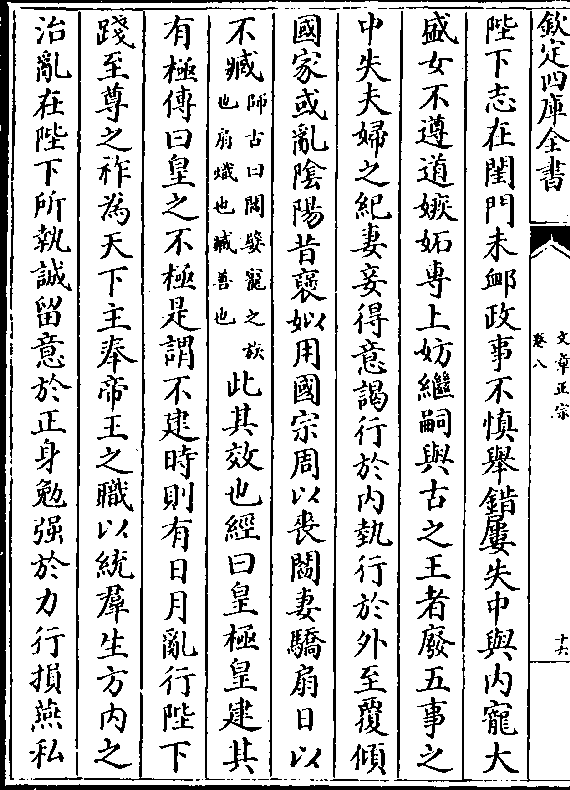 欽定四庫全書
文章正宗
卷八
十六
陛下志在閨門未卹政事不慎舉錯屢失中與內寵大
盛女不遵道嫉妬專上妨繼嗣與古之王者廢五事之
中失夫婦之紀妻妾得意謁行於內埶行於外至覆傾
國家或亂陰陽昔褒姒用國宗周以喪閻妻驕扇日以
不臧師古曰閻嬖寵之族也扇熾也臧善也此其效也經曰皇極皇建其
有極傳曰皇之不極是謂不建時則有日月亂行陛下
踐至尊之祚為天下主奉帝王之職以統羣生方內之
治亂在陛下所執誠留意於正身勉强於力行損燕私